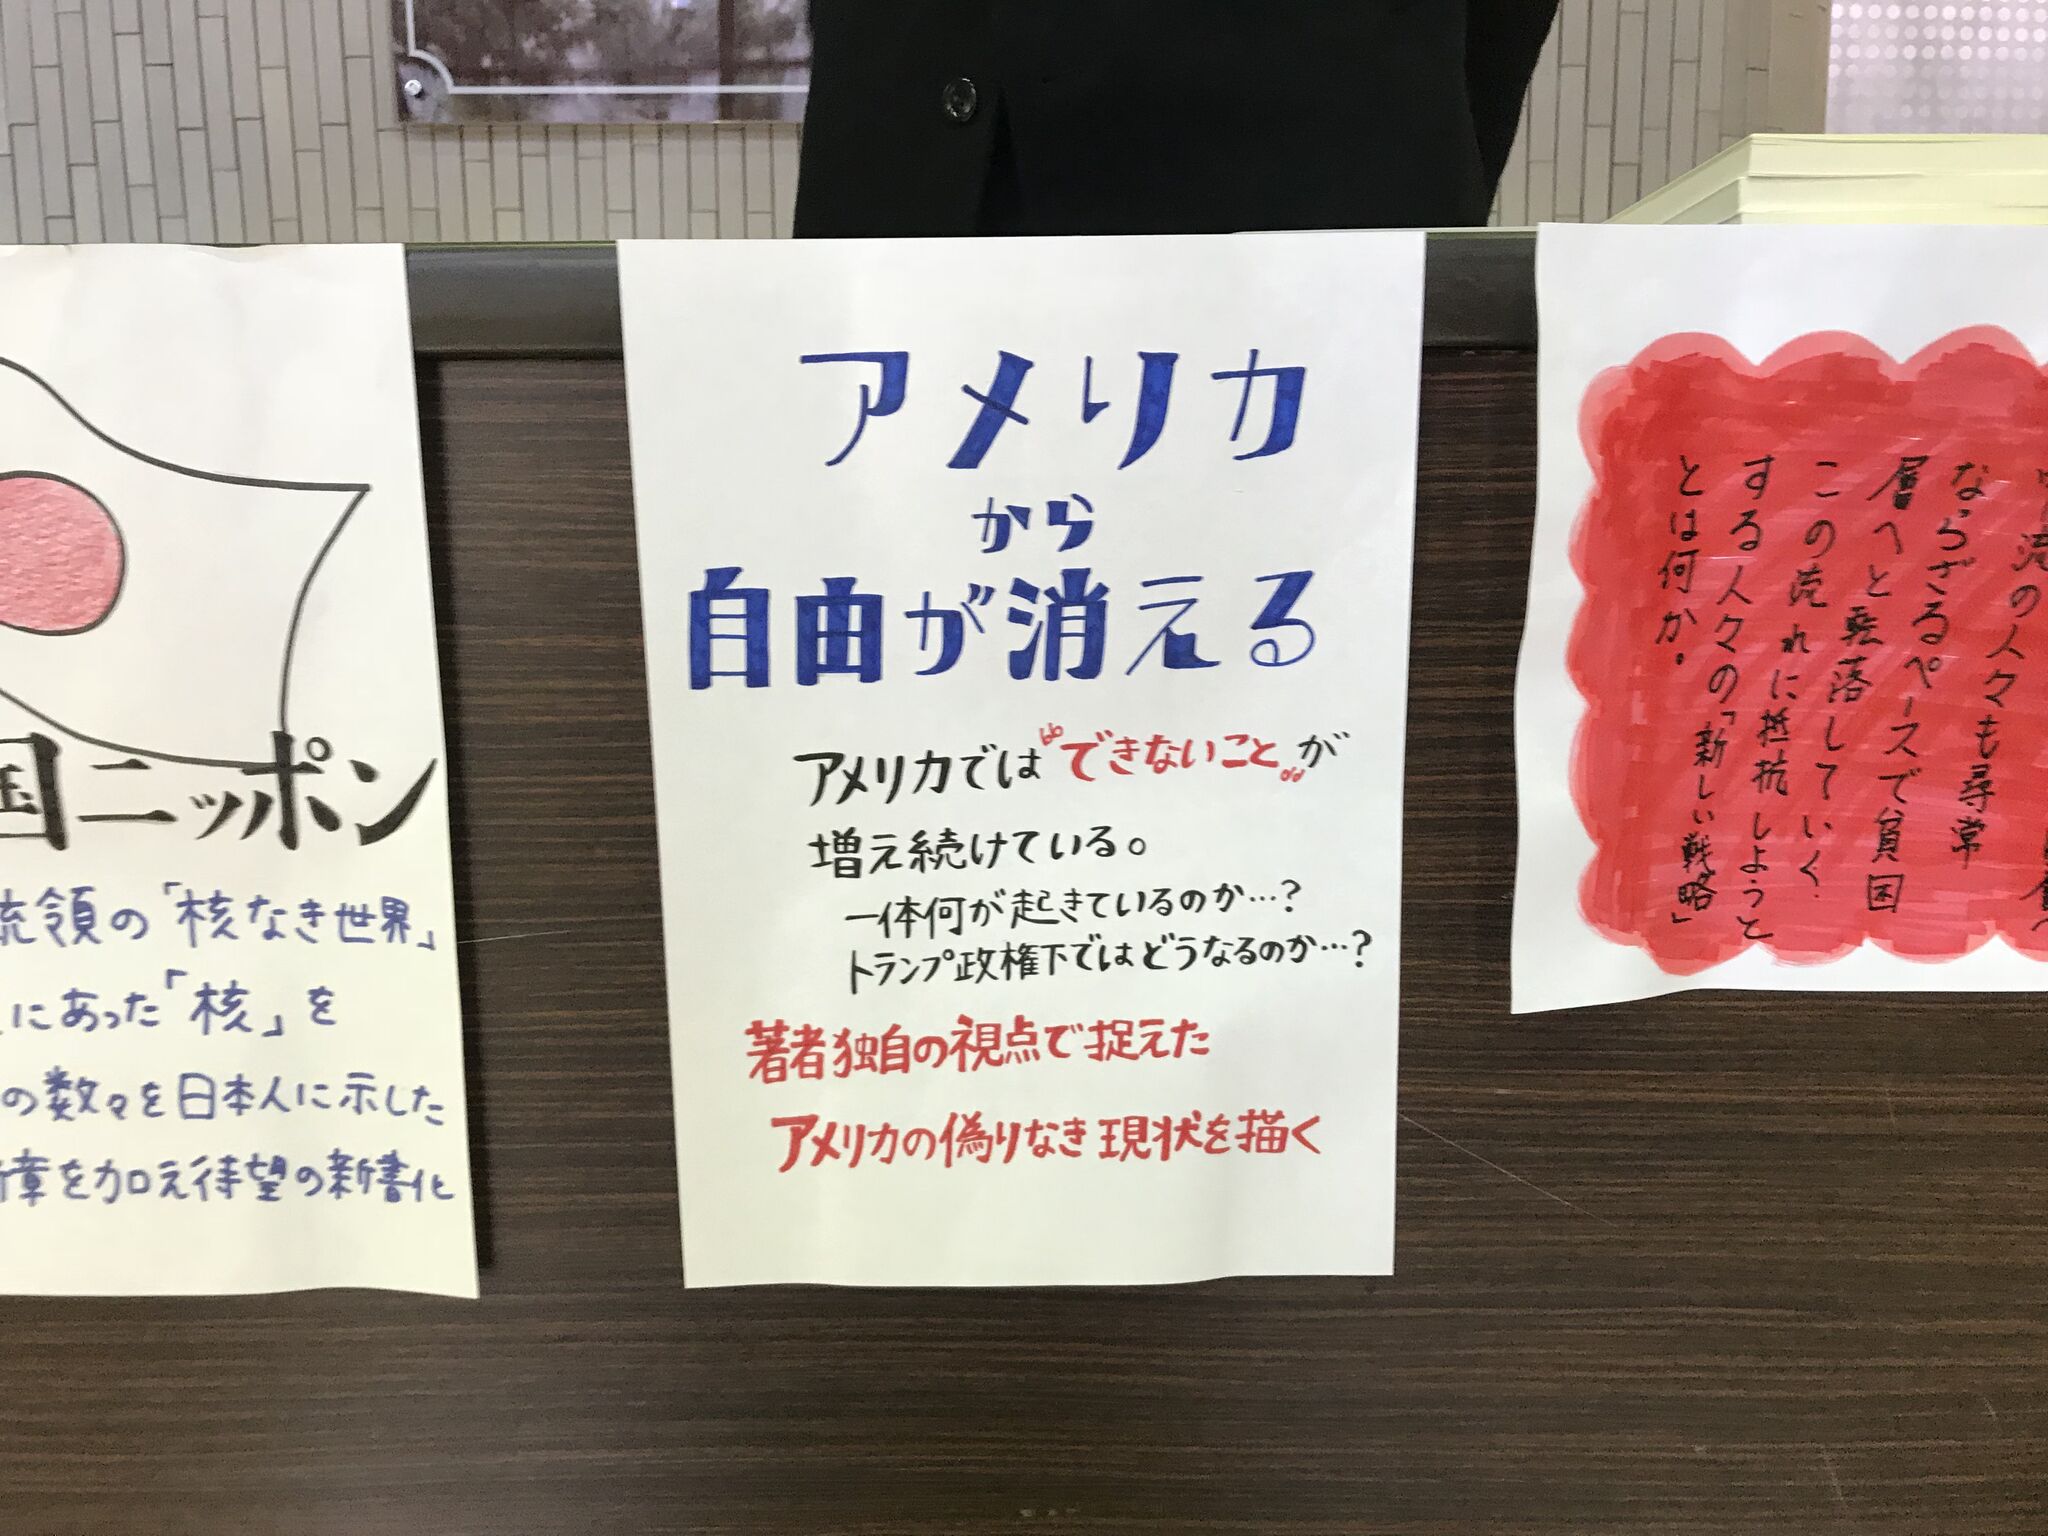 国ニッポン
統領の「核なき世界」
にあった「核」を
の数々を日本人に示した
章を加え待望の新書化
アメリカ
から
自由が消える
アメリカでは"できないこと"が
増え続けている。
一体何が起きているのか…?
トランプ政権下ではどうなるのか…?
著者独自の視点で捉えた
アメリカの偽りなき現状を描く
流の人々も尋常
ならざるペースで貧困
層へと転落していく.
この流れに抵抗しようと
する人々の「新しい戦略」
とは何か.